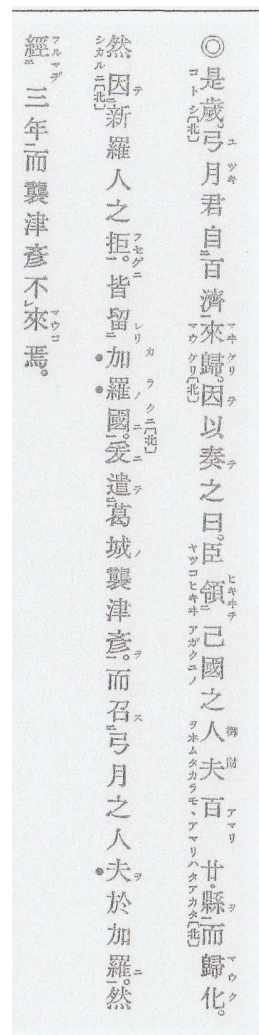 ◎是歲。弓月君自百濟來歸。因以奏之曰。臣領己國之人夫百廿縣而歸化。
然因新羅人之拒。皆留加羅國。爰遣葛城襲津彥。而召弓月之人夫於加羅。然
經三年而襲津彥不來焉。